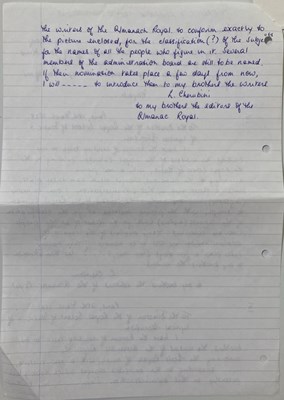 The writers of the Almanach Royal to conform exactly to
the picture enclosed, for the classification (?) of the subjects
for the names of all the people who figure in it. Several
members of the administration board are still to be named.
If their nomination takes place a few days from now,
I will _ _ _ _ _ to introduce them to my brother the writer
L. Cherubini
to my brother the editors of the
Almanac Royal.